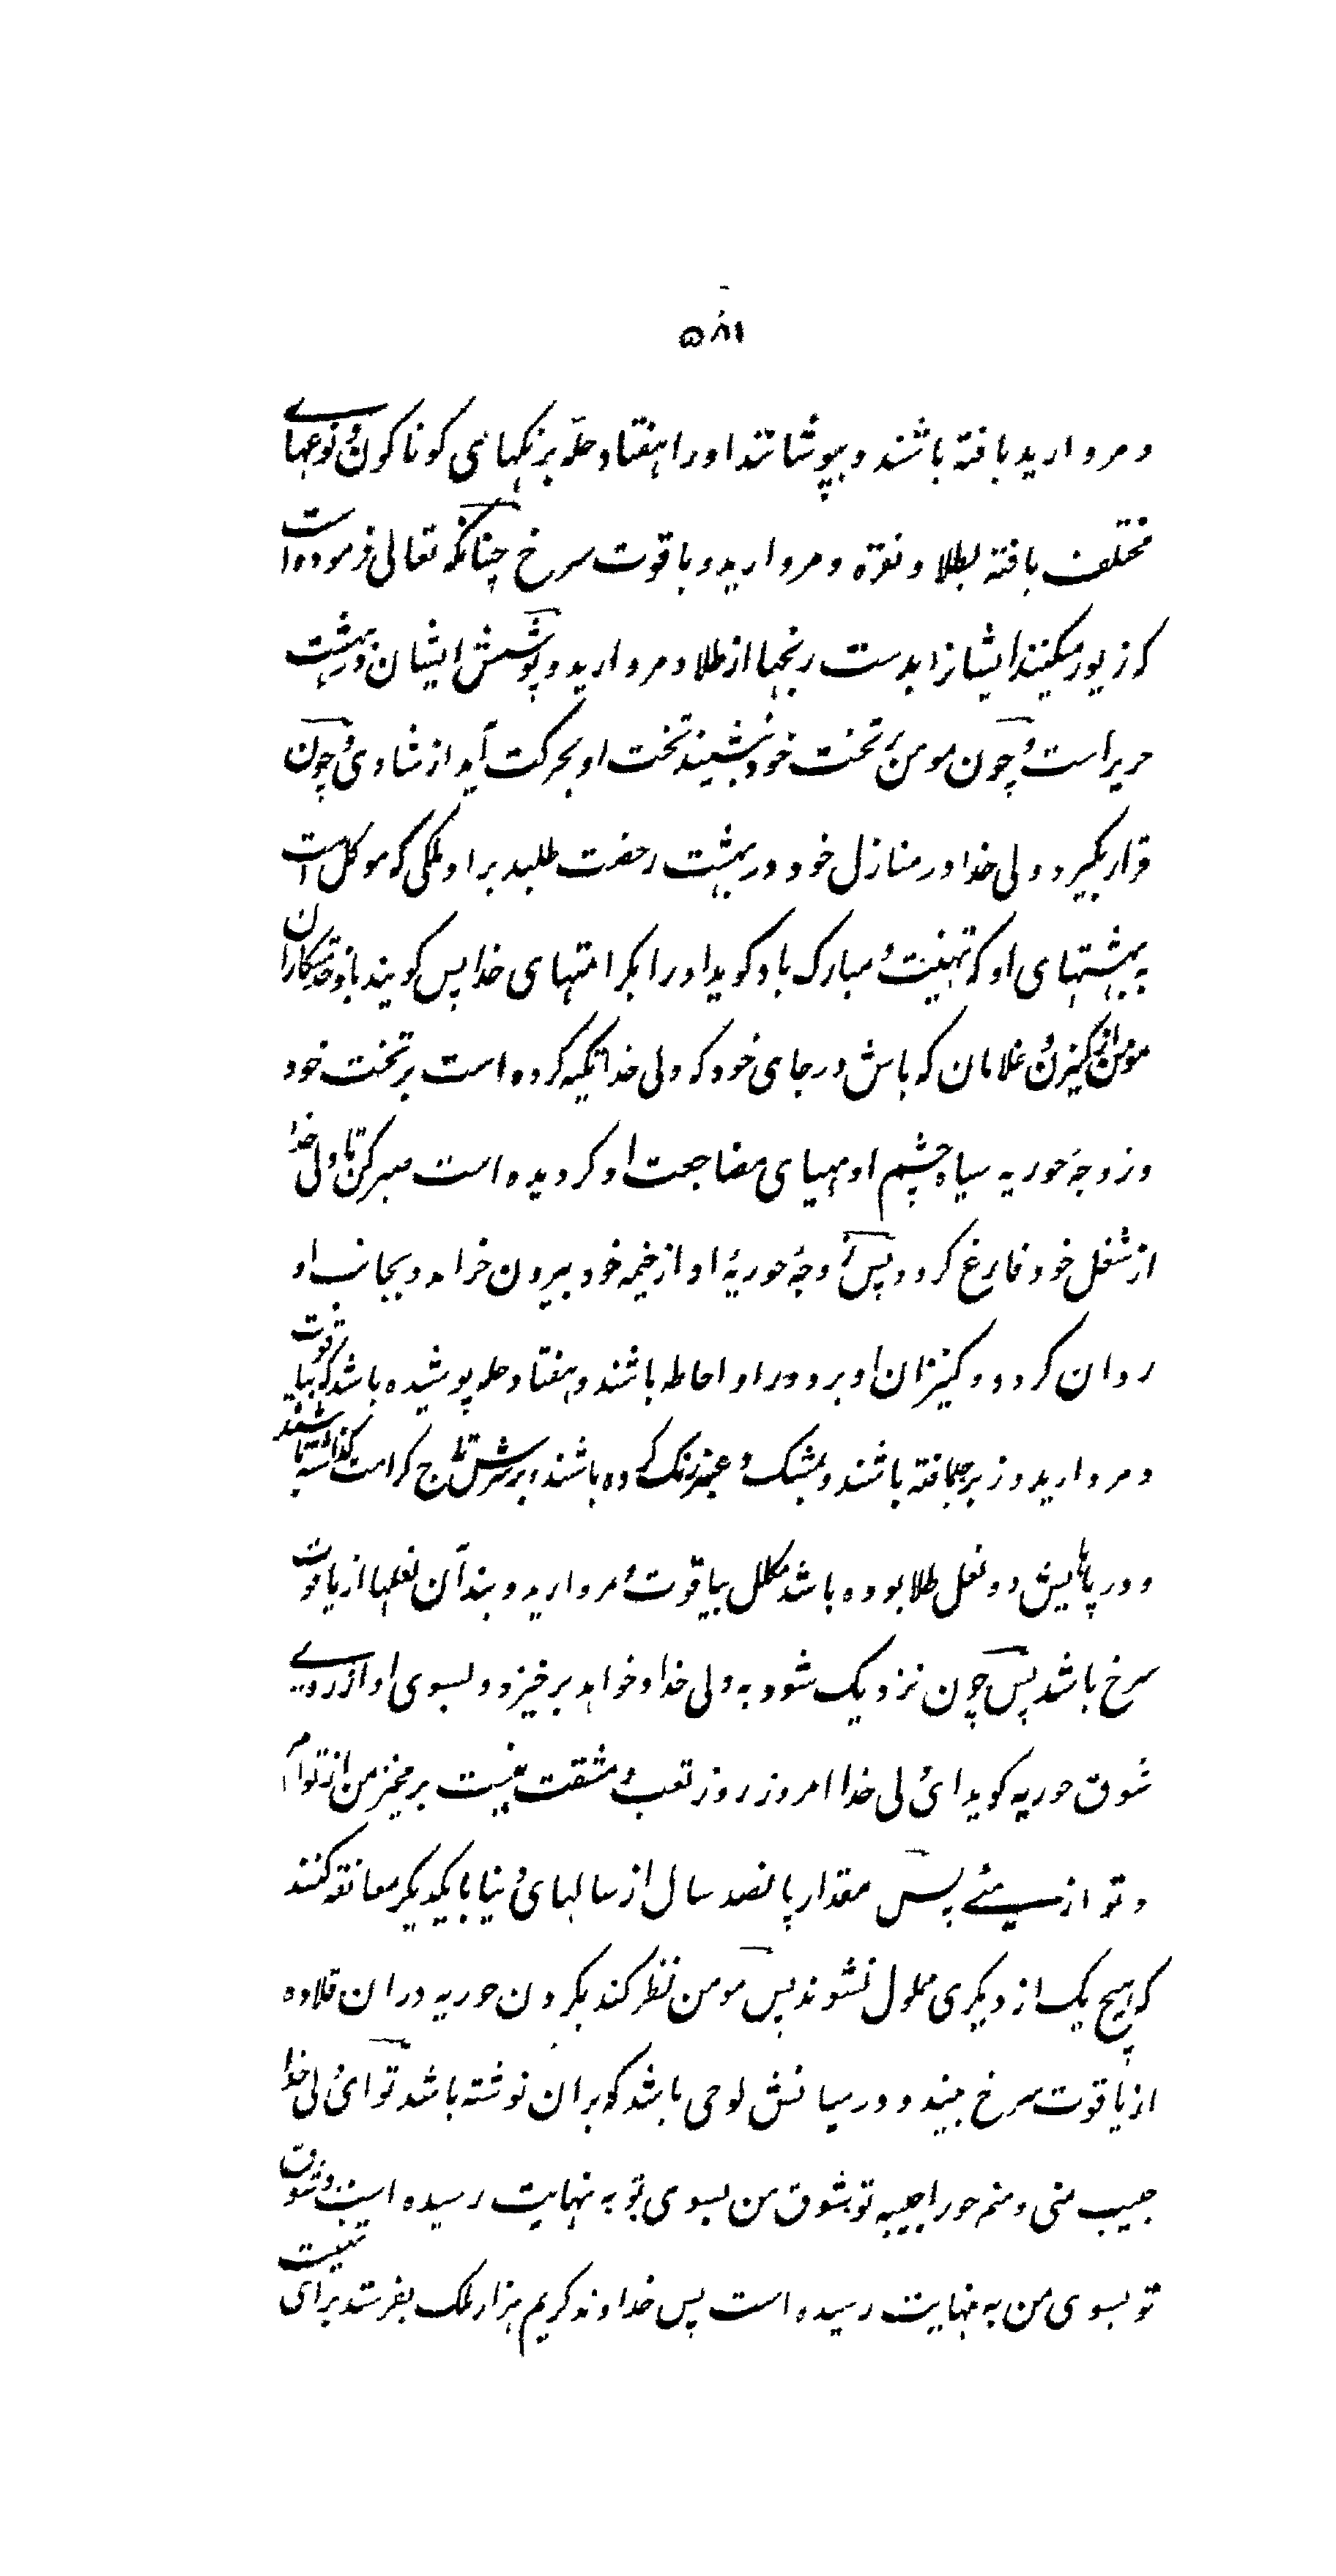 ۵۸۱
و مروارید بافته باشند و بپوشانند او را هفتاد حلّه برنکهای کوناکون و نوعهای
مختلف بافته بطلا و نقره و مروارید و یاقوت سرخ چنانکه تعالی فرموده است
که زیور میکنند ایشانرا بدست رنجها از طلا و مروارید و پوشش ایشان در بهشت
حریر است و چون مومن بر تخت خود بنشیند تخت او بحرکت آید از شادی و چون
قرار بگیرد ولی خدا در منازل خود در بهشت رخصت طلبد بر او ملکی که موکل است
به بهشتهای او که تهنیت و مبارک باد کوید او را بکرامتهای خدا پس کویند باو خدمتکاران
مومن از کنیزان و غلامان که باش در جای خود که ولی خدا تکیه کرده است بر تخت خود
و زوجه حوریه سیاه چشم او مهیای مضاجعت او کردیده است صبر کن تا ولی خدا
از شغل خود فارغ کردد پس زوجهٔ حوریهٔ او از خیمه خود بیرون خرامد و بجانب او
روان کردد و کنیزان او بر دور او احاطه باشند و هفتاد حله پوشیده باشد که بیاقوت
و مروارید و زبرجد بافته باشند و بمشک و عنبر رنک کرده باشند و بر سرش تاج کرامت کذاشته باشند
و در پاهایش دو نعل طلا بوده باشد مکلل بیاقوت و مروارید و بند آن نعلها از یاقوت
سرخ باشد پس چون نزدیک شود به ولی خدا و خواهد برخیزد و بسوی او از روی
شوق حوریه کوید ای ولی خدا امروز روز تعب و مشقت نیست برمخیز من از توام
و تو از منی پس مقدار پانصد سال از سالهای دنیا با یکدیکر معانقه کنند
که هیچ یک از دیکری ملول نشوند پس مومن نظر کند بکردن حوریه در ان قلاده
از یاقوت سرخ بیند و در میانش لوحی باشد که بر ان نوشته باشد تو ای ولی خدا
حبیب منی و منم حورا حبیبه تو شوق من بسوی تو به نهایت رسیده است و شوق
تو بسوی من به نهایت رسیده است پس خداوند کریم هزار ملک بفرستد برای تهنیت